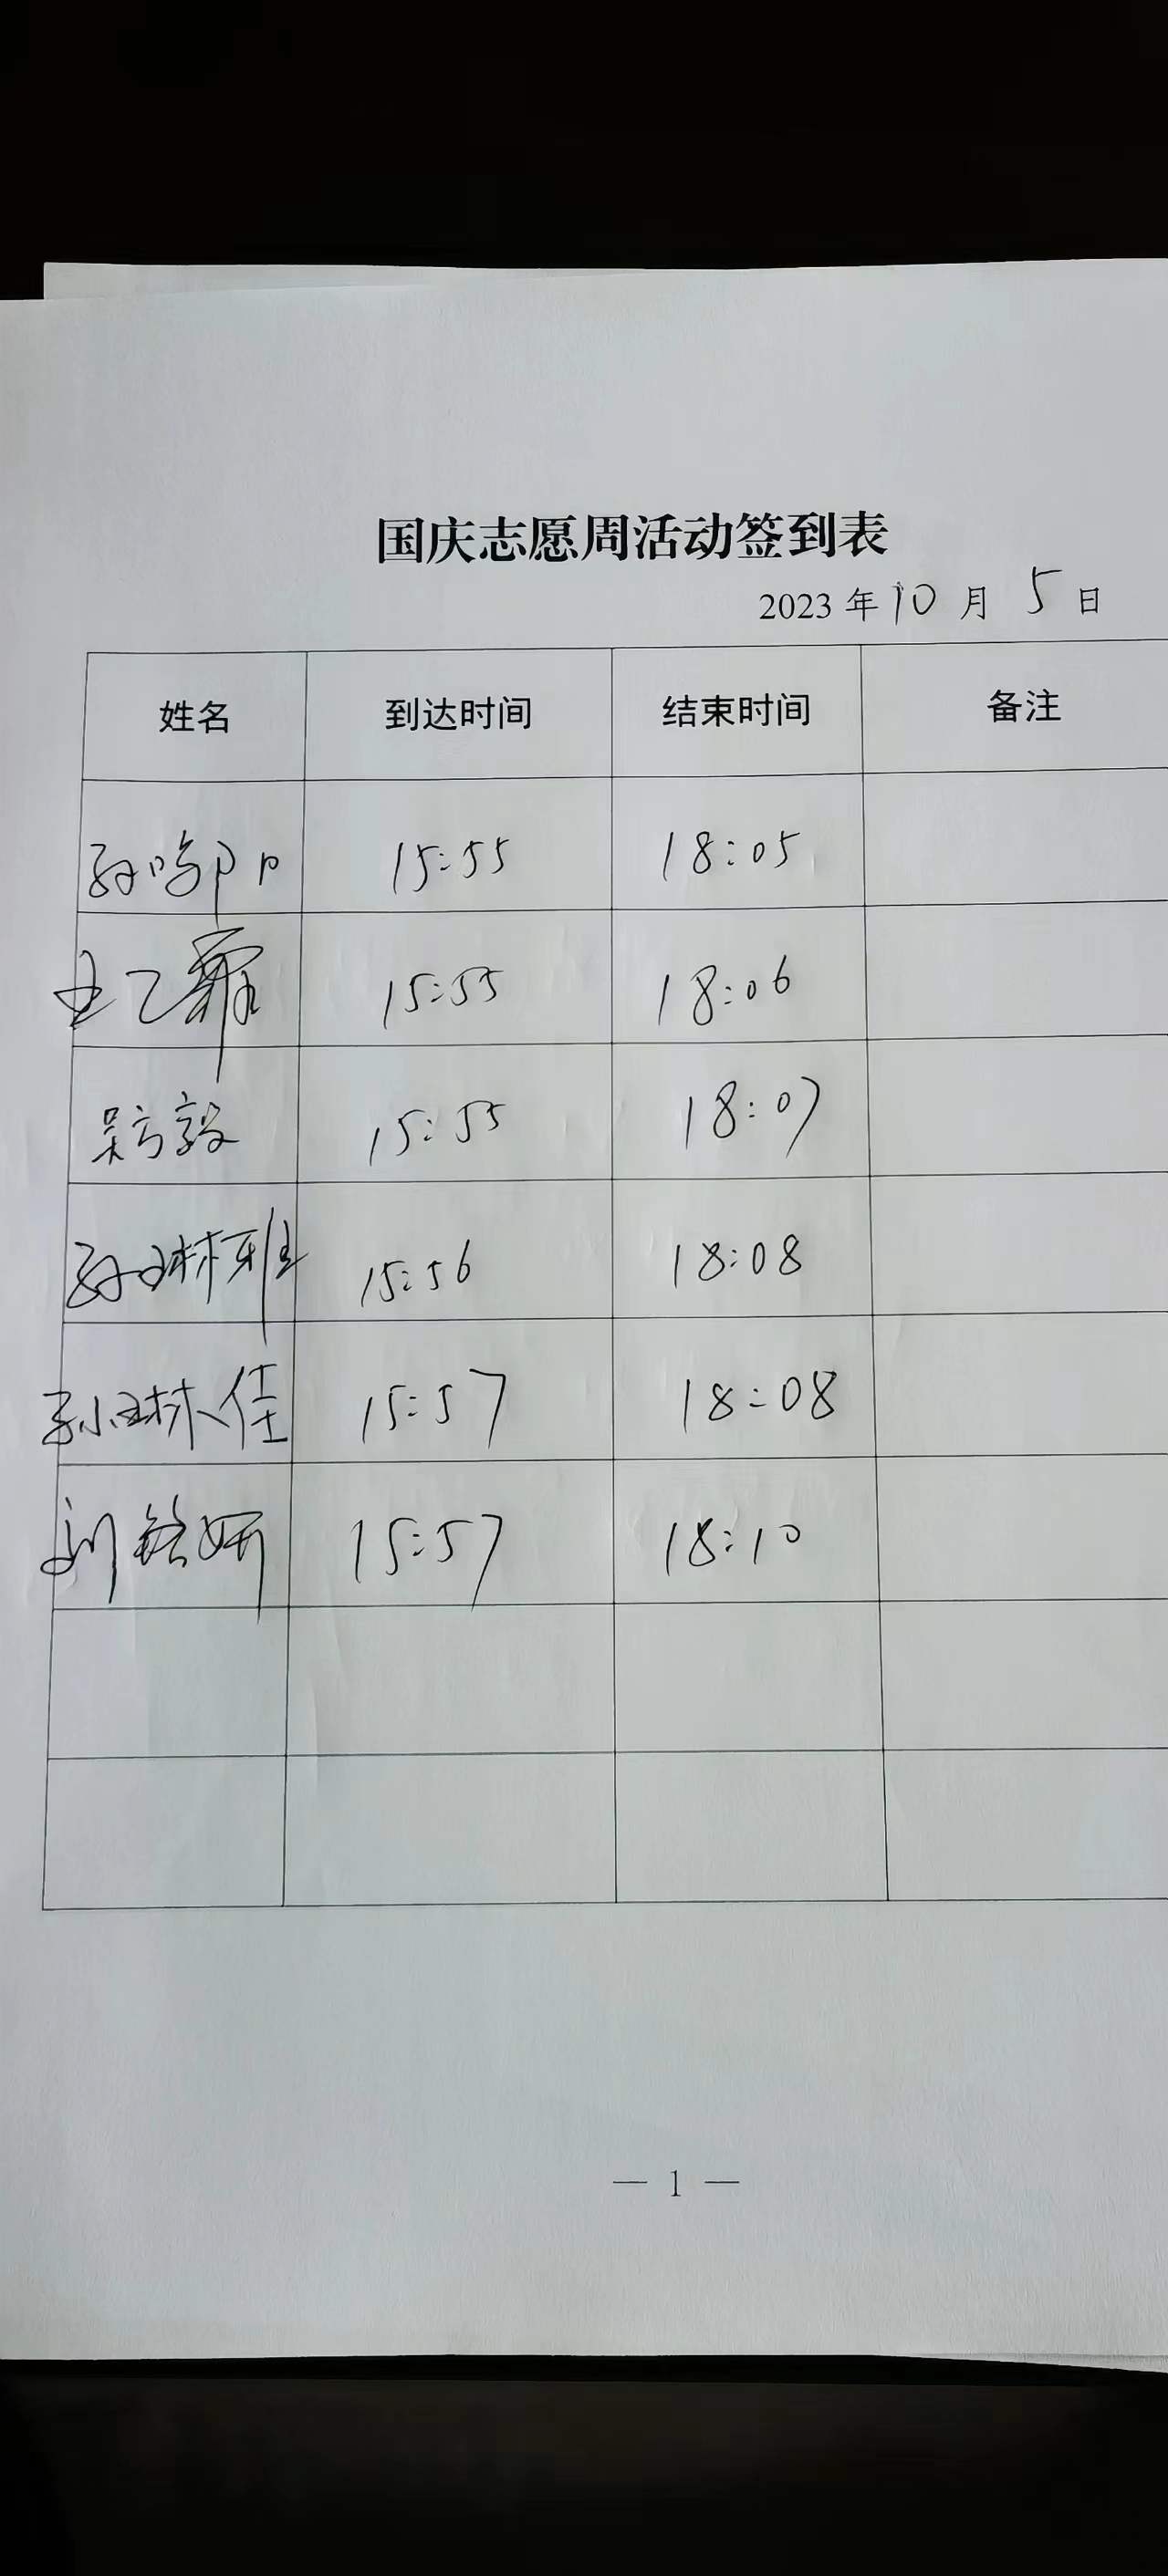 国庆志愿周活动签到表
2023 年 10 月 5 日
姓名 到达时间 结束时间 备注
15:55 18:05
15:55 18:06
吴方毅 15:55 18:07
孙琳雅 15:56 18:08
孙琳佳 15:57 18:08
刘铭妍 15:57 18:10
— 1 —